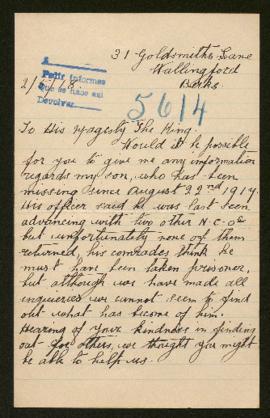 31 Goldsmith's Lane
Wallingford
Berks
A
Pedir informes
que se hace así
Devolver
2/5/18
5614
To His Magesty The King.
Would it be possible
for you to give me any information
regards my son, who has been
missing since August 22nd 1917.
His officer said he was last seen
advancing with two other N.C.Os
but unfortunately none of them
returned, his comrades think he
must have been taken prisoner,
but although we have made all
enquieries we cannot seem to find
out what has become of him.
Hearing of your kindness in finding
out for others, we thought you might
be able to help us.